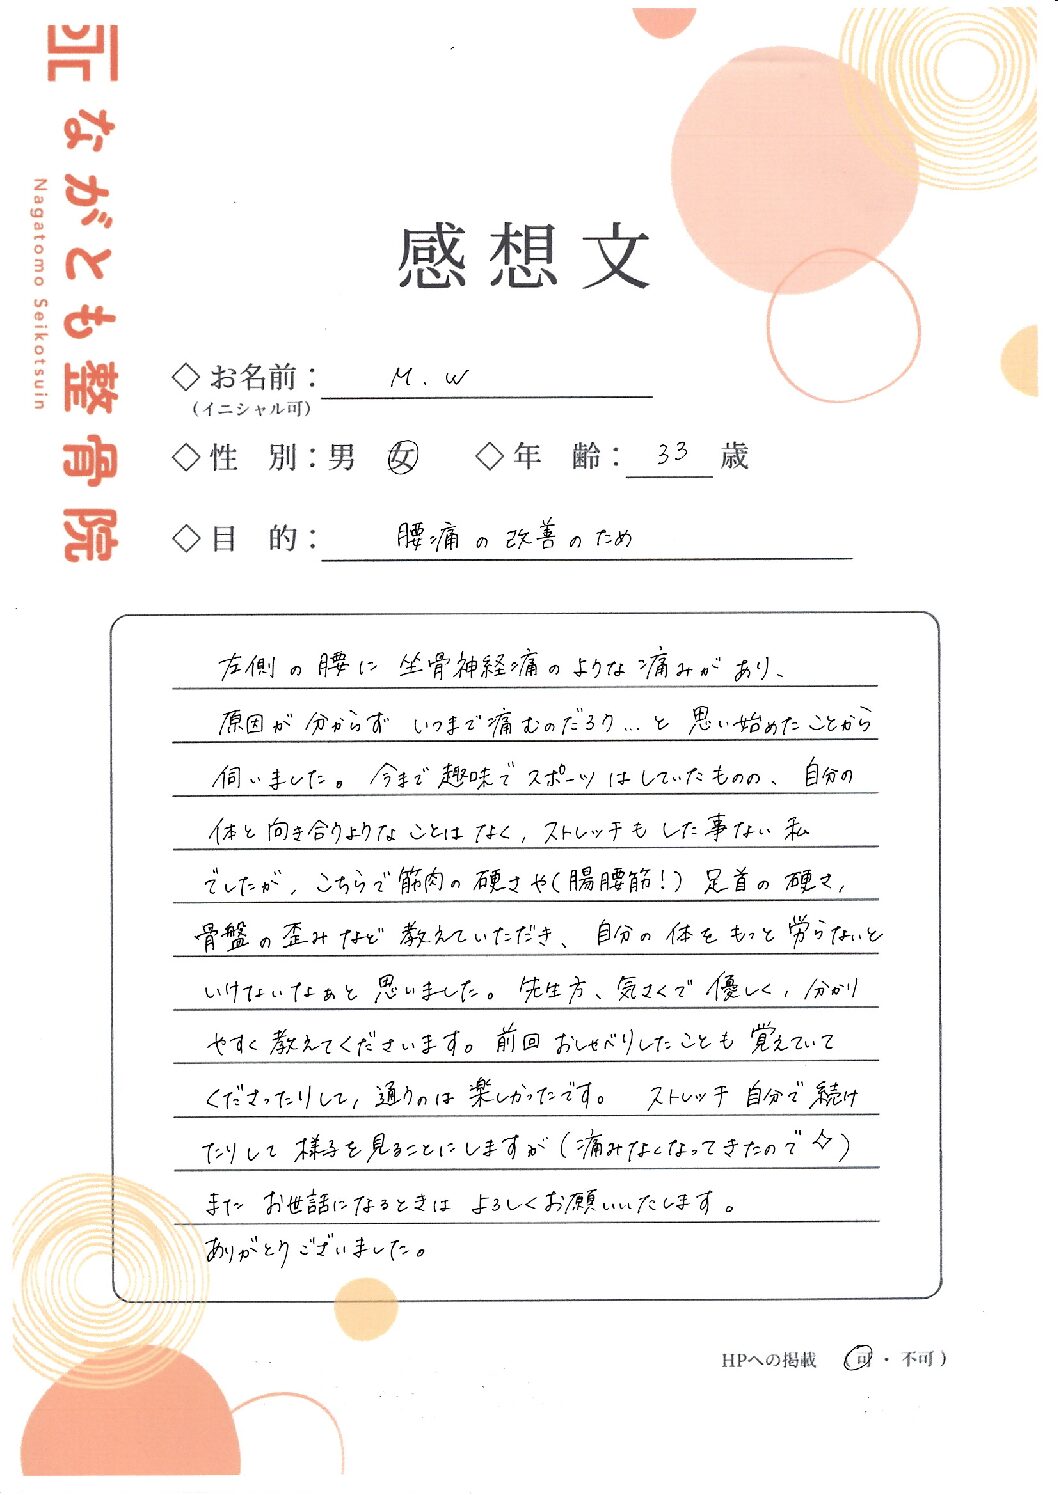 ながとも整骨院
Nagatomo Seikotsuin
感想文
◇お名前： M.W
（イニシャル可）
◇性 別：男 女 ◇年 齢： 33 歳
◇目 的： 腰痛の改善のため
左側の腰に坐骨神経痛のような痛みがあり、
原因が分からず いつまで痛むのだろう…と 思い始めたことから
伺いました。今まで趣味でスポーツはしていたものの、自分の
体と向き合うようなことはなく、ストレッチもした事ない私
でしたが、こちらで筋肉の硬さや(腸腰筋!) 足首の硬さ、
骨盤の歪みなど 教えていただき、自分の体をもっと労らないと
いけないなぁと 思いました。先生方、気さくで優しく、分かり
やすく教えてくださいます。前回おしゃべりしたことも覚えていて
くださったりして、通うのは楽しかったです。 ストレッチ自分で続け
たりして様子を見ることにしますが(痛みなくなってきたので✧)
また お世話になるときは よろしくお願いいたします。
ありがとうございました。
HPへの掲載 （可・不可）